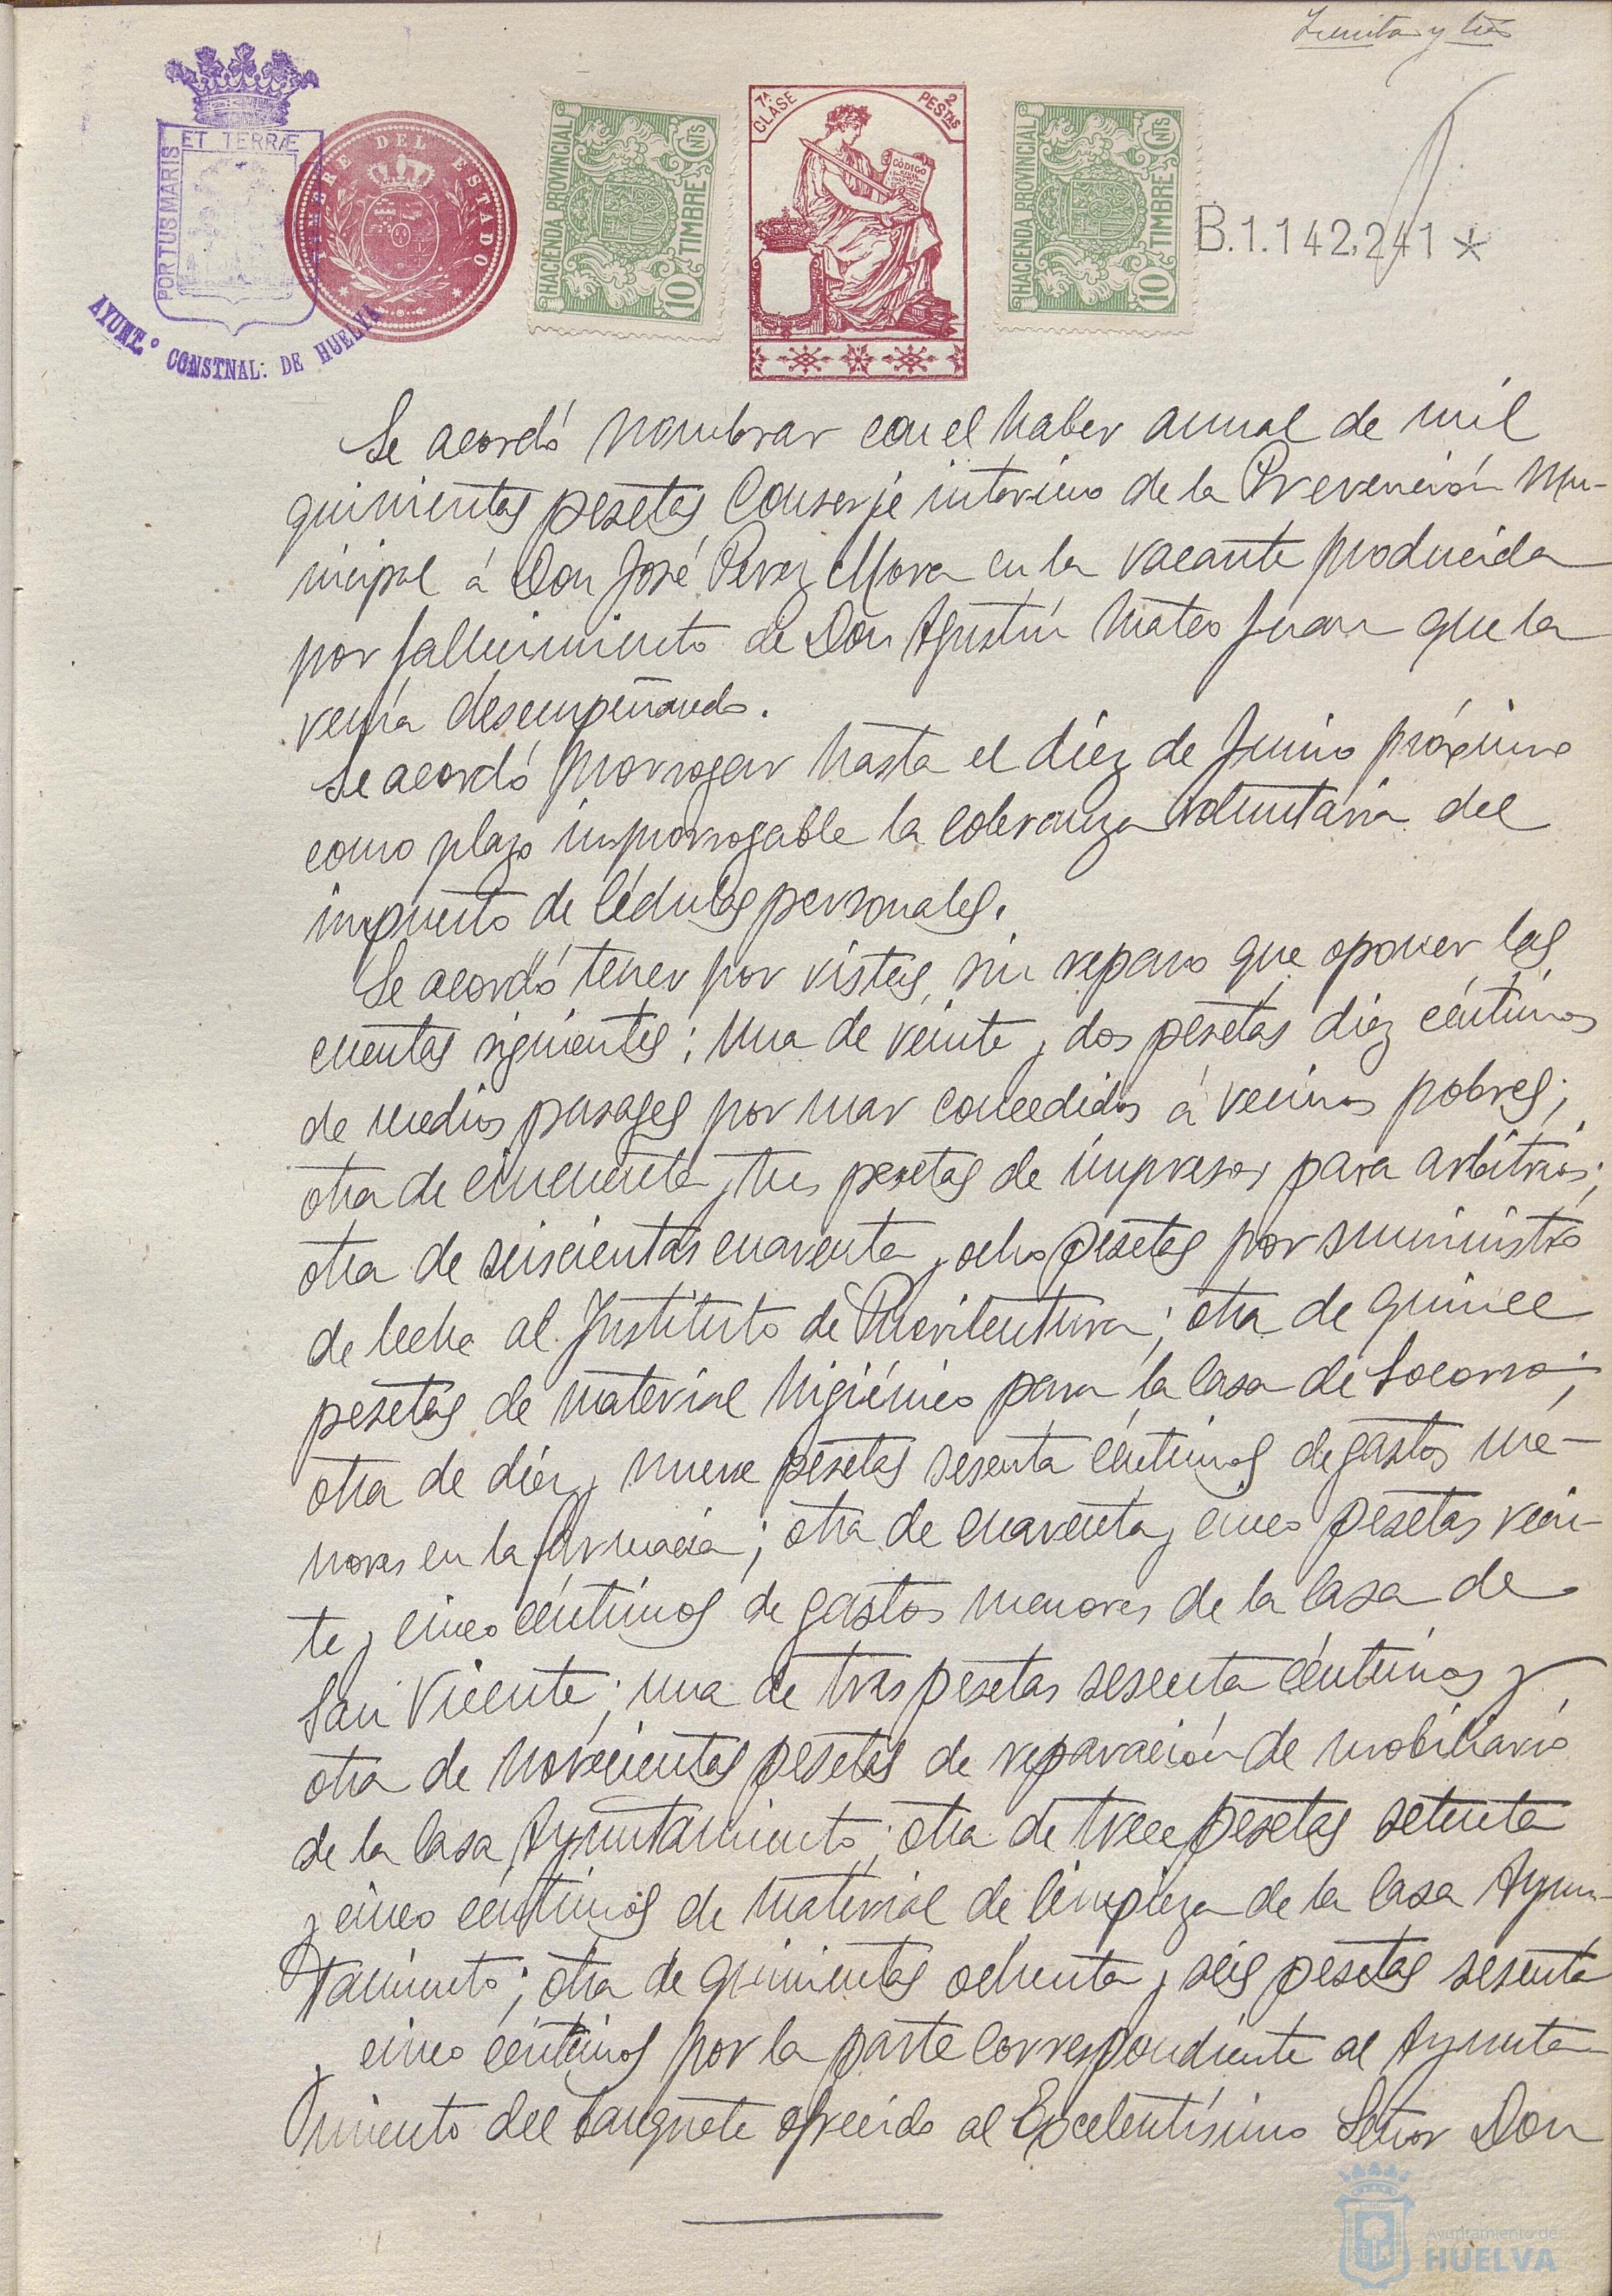 Treinta y tres
ET TERRÆ
PORTUS MARIS
AYUNT.º CONSTNAL: DE HUELVA
TIMBRE DEL ESTADO
HACIENDA PROVINCIAL
10 CNTS
TIMBRE
7ª CLASE
2 PESTAS
CÓDIGO
HACIENDA PROVINCIAL
10 CNTS
TIMBRE
B.1.142,241*
Se acordó nombrar con el haber anual de mil
quinientas pesetas Conserje interino de la Prevención Mu-
nicipal á Don José Perez Mora en la vacante producida
por fallecimiento de Don Agustín Mateo Juan que la
venía desempeñando.
Se acordó prorrogar hasta el diez de Junio próximo
como plazo improrrogable la cobranza voluntaria del
impuesto de Cédulas personales.
Se acordó tener por vistas, sin reparo que oponer las
cuentas siguientes: una de veinte y dos pesetas diez céntimos
de medios pasages por mar concedidos á vecinos pobres;
otra de cincuenta y tres pesetas de impresos para arbitrios;
otra de seiscientas cuarenta y ocho pesetas por suministro
de leche al Instituto de Puericultura; otra de quince
pesetas de material higiénico para la Casa de Socorro;
otra de diez y nueve pesetas sesenta céntimos de gastos me-
nores en la farmacia; otra de cuarenta y cinco pesetas vein-
te y cinco céntimos de gastos menores de la Casa de
San Vicente; una de tres pesetas sesenta céntimos y
otra de novecientas pesetas de reparación de mobiliario
de la Casa Ayuntamiento; otra de trece pesetas setenta
y cinco céntimos de material de limpieza de la Casa Ayun-
tamiento; otra de quinientas ochenta y seis pesetas sesenta
y cinco céntimos por la parte correspondiente al Ayunta-
miento del banquete ofrecido al Excelentísimo Señor Don
Ayuntamiento de
HUELVA